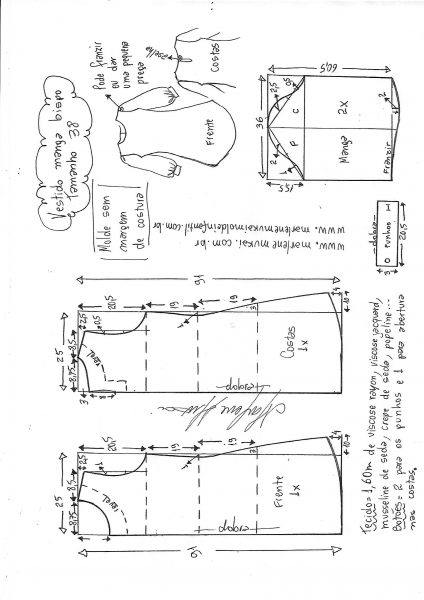 Vestido manga bispo
tamanho 38
Pode franzir
ou dar
uma pequena
prega
aselha
Costas
Frente
Molde sem
margem
de costura
www.marlenemukai.com.br
www.marlenemukaimoldeinfantil.com.br
60,5
36
15,5
2,5
0,5
2
1
C
P
2X
Manga
Franzir
2
dobra
Punhos
3
20,5
91
25
8,75
8,5
2,5
0,5
20,5
19
19
1
3
4
10
3
8
Costas
1x
91
25
8,75
8,5
2,5
1
20,5
19
19
1
3
4
10
Frente
1x
Tecido = 1,60m de viscose rayon, viscose jacquard,
musseline de seda, crepe de seda, popeline...
Botões = 2 para os punhos e 1 para abertura
nas costas.